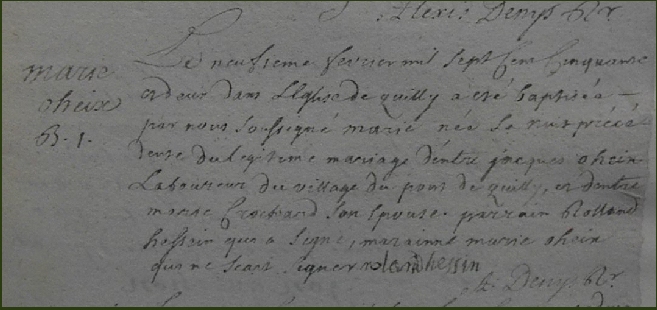 : Alexis Denys Rr.
Le neufsieme fevrier mil sept cens cinquante
marie
oheix
B. 1.
et deux dans L'Eglise de quilly a été baptisée —
par nous soussigné marie née la nuit précé
dente du legitime mariage d'entre jacques oheix
Laboureur du village du pont de quilly, et d'entre
marie Crochard son epouse. parrain Rolland
hessein qui a signé, marainne marie oheix
qui ne scait signer roland hessin
A. Denys Rr.